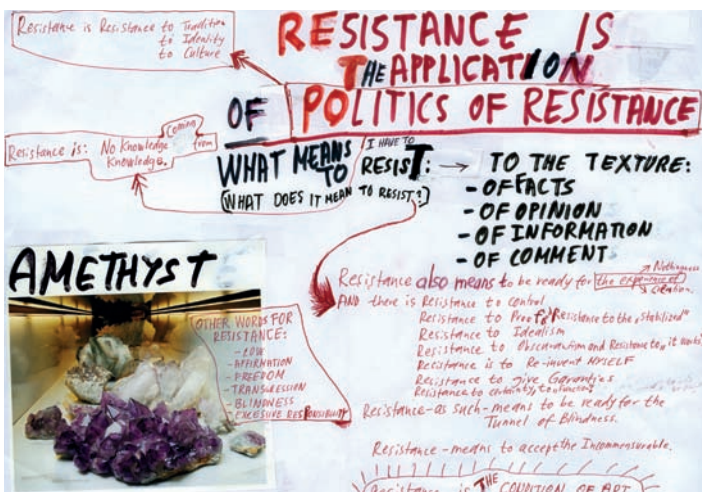 Resistance is Resistance to Tradition
to Identity
to Culture
RESISTANCE IS
THE APPLICATION
OF POLITICS OF RESISTANCE
Resistance is: No Knowledge Coming from
Knowledge.
WHAT MEANS
TO
I HAVE TO
RESIST: → TO THE TEXTURE:
(WHAT DOES IT MEAN TO RESIST?)
- OF FACTS
- OF OPINION
- OF INFORMATION
- OF COMMENT
AMETHYST
OTHER WORDS FOR
RESISTANCE:
- LOVE
- AFFIRMATION
- FREEDOM
- TRANSGRESSION
- BLINDNESS
- EXCESIVE RESPONSIBILITY
Resistance also means to be ready for the experience of
Nothingness
Creation.
AND there is Resistance to control
Resistance to "Resistance to the "stabilized"
Resistance to Idealism
Resistance to Obscurantism and Resistance to "it works"
Resistance is to Re-invent MYSELF
Resistance to give Garanties
Resistance to certainty, to
Resistance-as such-means to be ready for the
Tunnel of Blindness.
Resistance - means to accept the Incommensurable.
Resistance is THE CONDITION OF ART